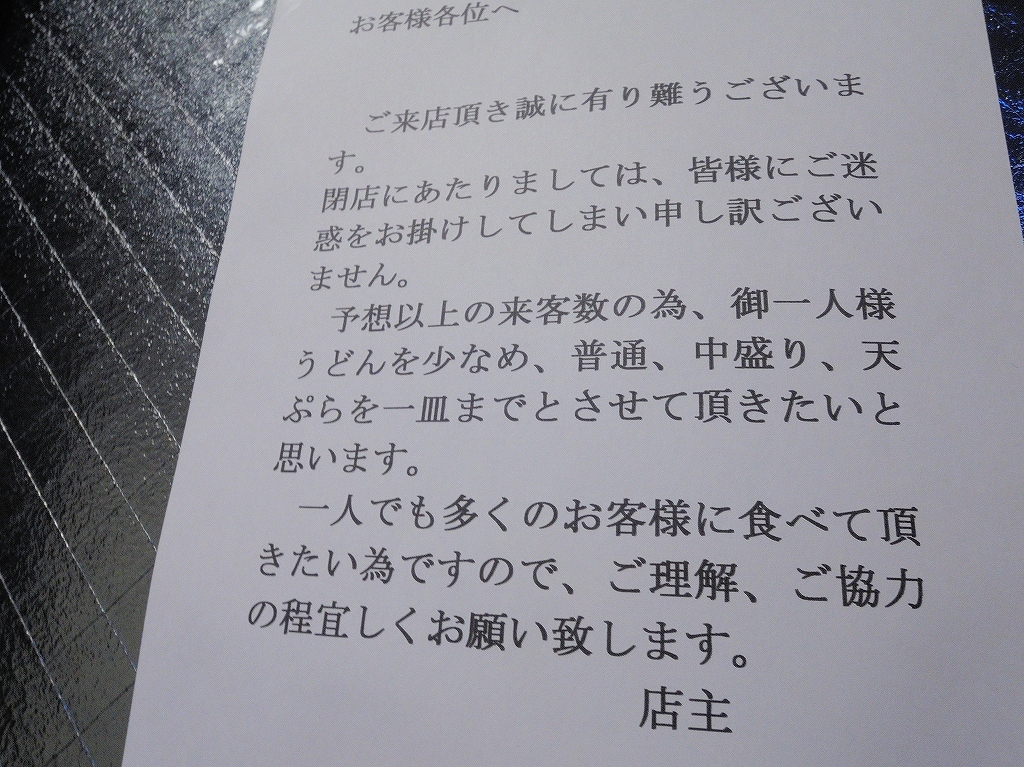 お客様各位へ
ご来店頂き誠に有り難うございま
す。
閉店にあたりましては、皆様にご迷
惑をお掛けしてしまい申し訳ござい
ません。
予想以上の来客数の為、御一人様
うどんを少なめ、普通、中盛り、天
ぷらを一皿までとさせて頂きたいと
思います。
一人でも多くのお客様に食べて頂
きたい為ですので、ご理解、ご協力
の程宜しくお願い致します。
店主